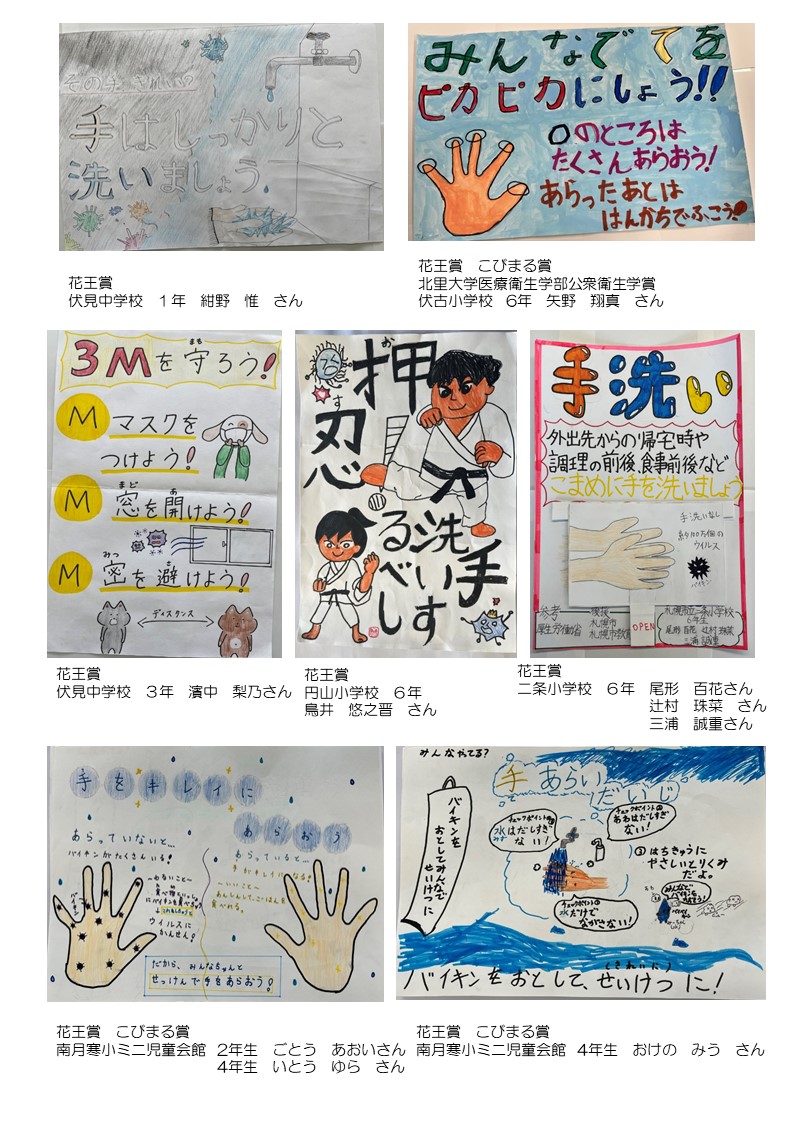 その手、きれい?
手はしっかりと
洗いましょう。
花王賞
伏見中学校　1年　紺野　惟　さん
みんなでてを
ピカピカにしょう!!
Oのところは
たくさんあらおう!
あらったあとは
はんかちでふこう!
花王賞　こびまる賞
北里大学医療衛生学部公衆衛生学賞
伏古小学校　6年　矢野　翔真　さん
3Mを守ろう!
まも
M マスクを
つけよう!
M 窓を開けよう!
まど
あ
M 密を避けよう!
みつ
さ
ディスタンス
花王賞
伏見中学校　3年　濱中　梨乃さん
押
お
忍
す
手
洗いす
るべし
花王賞
円山小学校　6年
鳥井　悠之晋　さん
手洗い
外出先からの帰宅時や
調理の前後、食事前後など
こまめに手を洗いましょう
手洗いなし
約100万個の
ウイルス
バイキン
参考
厚生労働省
後援
札幌市
札幌市教
OPEN
札幌市立二条小学校
6年生
尾形 百花 辻村 珠菜
三浦 誠重
花王賞
二条小学校　6年　尾形　百花さん
辻村　珠菜　さん
三浦　誠重さん
手をキレイに
あらおう
あらっていないと…
バイキンがたくさんいる!
〜わるいこと〜
食べ物といっしょ
にバイキンを食べちゃう
ウイルスに
かんせん!
あらっていると…
手がキレイになる!
〜いいこと〜
あんしんしてごはんを
食べれる。
だから、みんなちゃんと
せっけんで手をあらおう!
花王賞　こびまる賞
南月寒小ミニ児童会館　2年生　ごとう　あおいさん
4年生　いとう　ゆら　さん
みんなやってる?
手あらい
だいじ
バイキンを
おとしてみんなで
せいけつに
チェックポイント
水はだしすぎ
みず
ない!
チェックポイント
あわはだしすぎ
ない!
チェックポイント
水だけで
ながさない!
③はちきゅうに
やさしいとりくみ
だよ。
バイキンをおとして、せいけつに!
(きれいに)
花王賞　こびまる賞
南月寒小ミニ児童会館　4年生　おけの　みう　さん